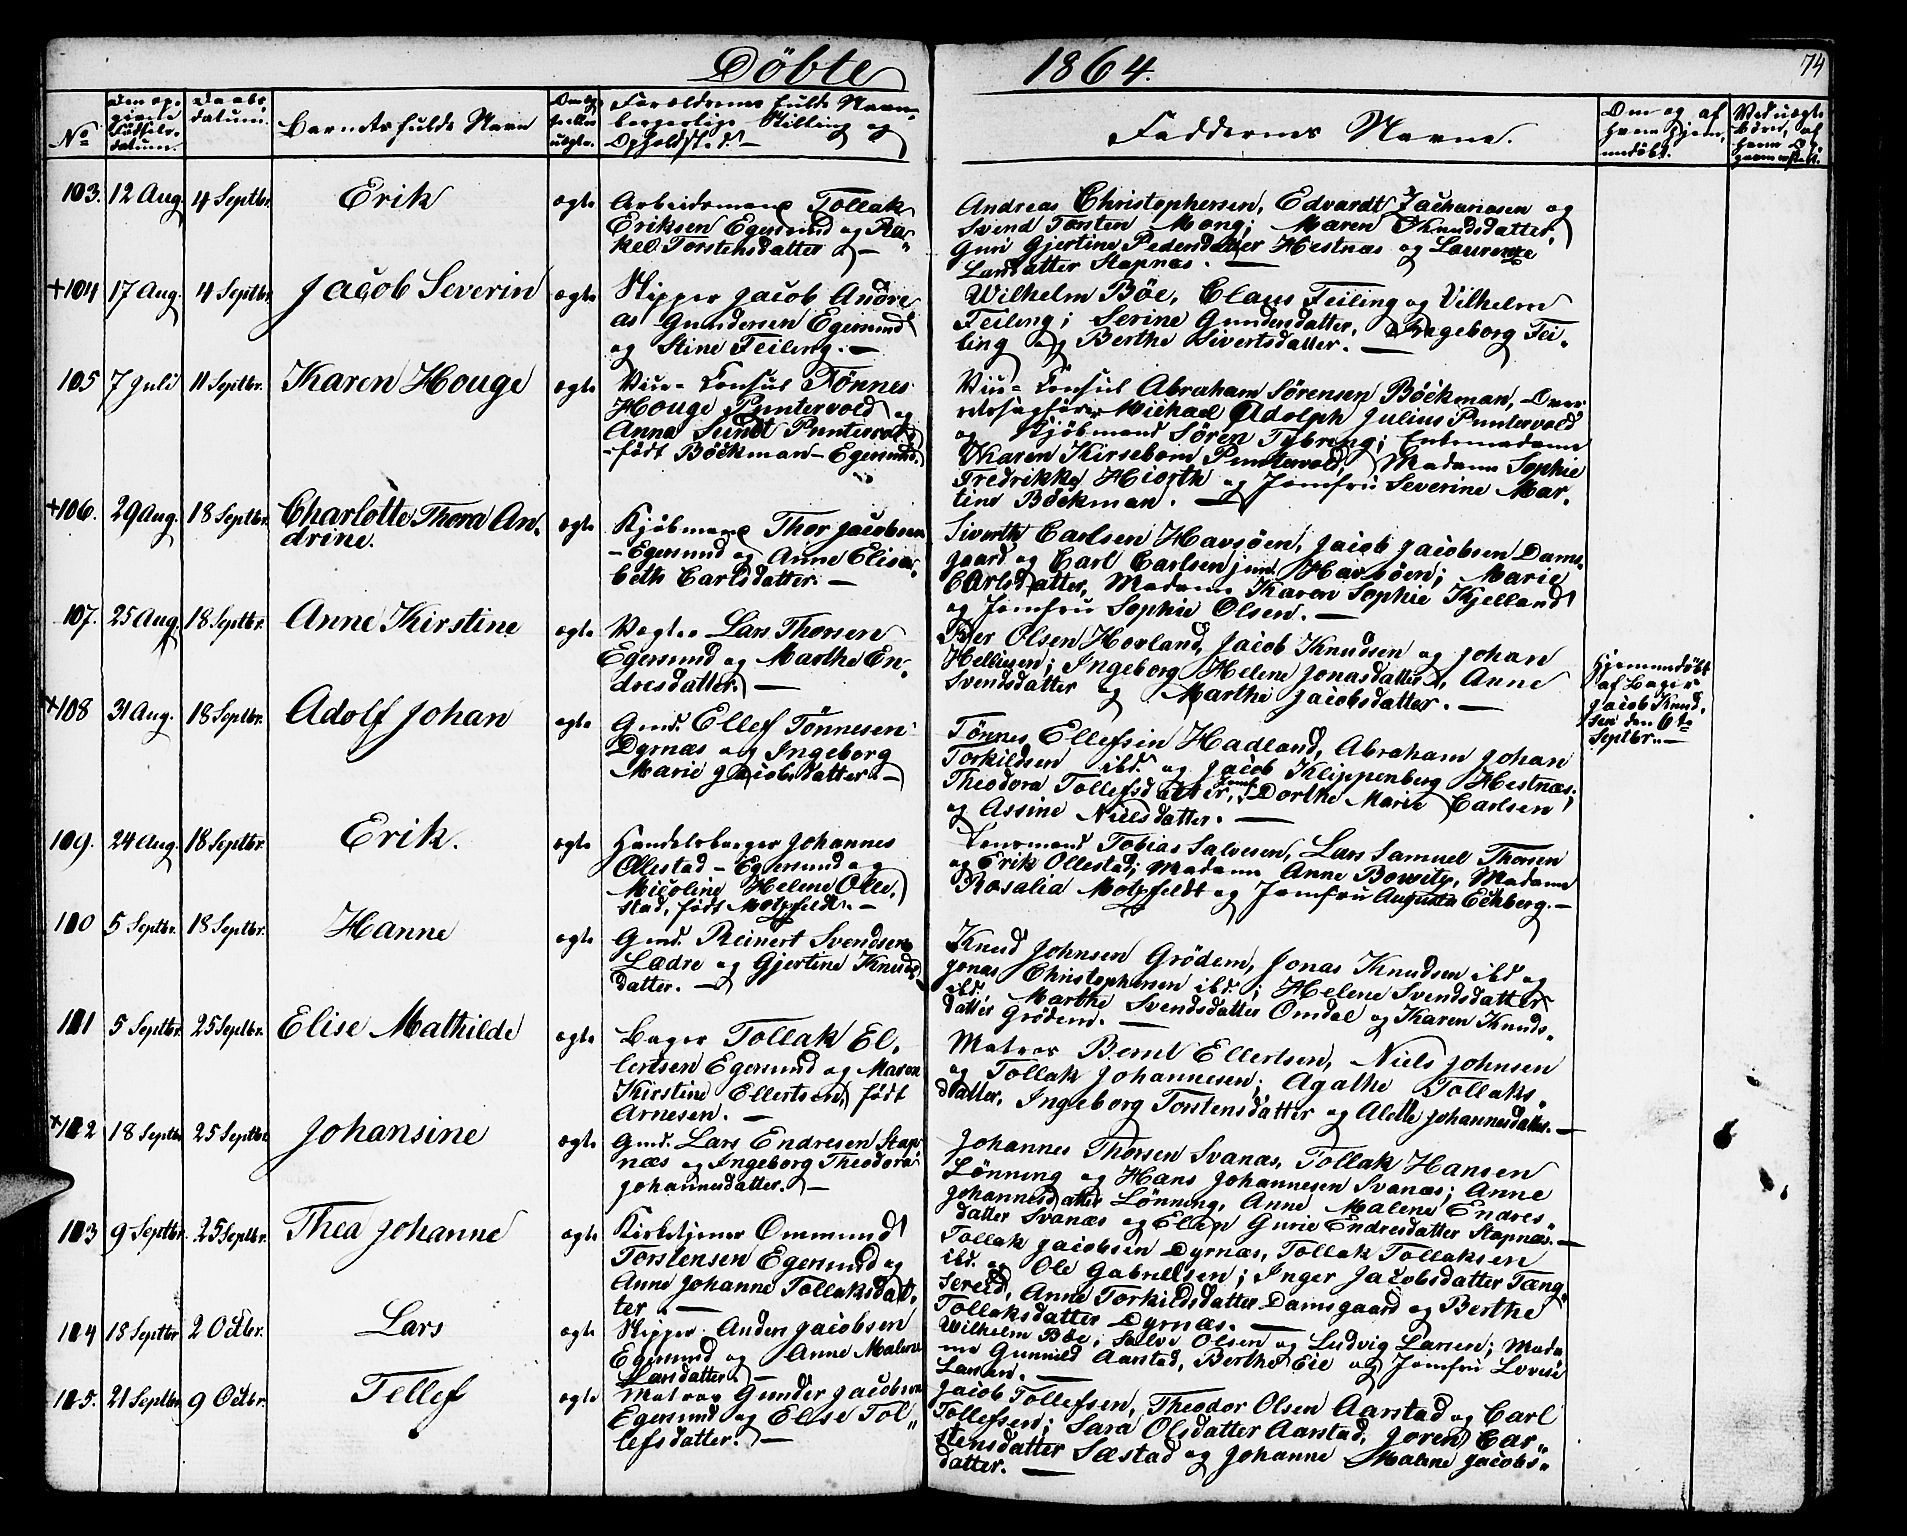 Döbte 1864.
74
No
Den op-
givne
Födsels-
datum.
Daabs-
datum.
Barnets fulde Navn
Om ægte
eller
uægte.
Forældrenes fulde Navn
borgerlige Stilling og
Opholdsted.
Faddernes Navne.
Om og af
hvem hjem-
medöbt.
Ved uægte
Börn, af
103. 12 Aug. 4 Septbr. Erik ægte
Arbeidsmand Tollak
Eriksen Egersund og Ra-
kel Torstensdatter. —
Andreas Christophersen, Edvardt Zachariasen og
Svend Torsten Mong; Maren Knudsdatter,
Guri Gjertine Pedersdatter Hestnæs og Laurenze
Larsdatter Stapnæs. —
+104 17 Aug. 4 Septbr. Jacob Severin ægte
Skipper Jacob Andre
as Gundersen Egersund
og Stine Feiling. —
Wilhelm Böe, Claus Feiling og Vilhelm
Feiling; Serine Gundersdatter, Ingeborg Fei-
ling og Berthe Sivertsdatter. —
105 7 Juli 11 Septbr. Karen Houge ægte
Vice-Consul Tönnes
Houge Puntervold og
Anna Sundt Puntervold
född Böckman – Egersund.
Vice-Consul Abraham Sörensen Böckman, Over
retssagförer Michael Adolph Julius Puntervold
og Kjöbmand Sören Tybring; Enkemadame
Karen Kirsebom Puntervold, Madame Sophie
Fredrikke Hiorth og Jomfru Severine Mar-
tine Böckman. —
+106. 29 Aug. 18 Septbr. Charlotte Thora An-
drine. ægte
Kjöbmand Thor Jacobsen
– Egersund og Anne Elisa-
beth Carlsdatter. —
Siverth Carlsen Havsöen, Jacob Jacobsen Dams-
gaard og Carl Carlsen jun. Havsöen; Marie
Carlsdatter, Madame Karen Sophie Kjelland
og Jomfru Sophie Olsen. —
107. 25 Aug. 18 Septbr. Anne Kirstine ægte
Vægter Lars Thorsen
Egersund og Marthe En-
dresdatter. —
Peder Olsen Hovland, Jacob Knudsen og Johan
Helliesen; Ingeborg Helene Jonasdatter, Anne
Svendsdatter og Marthe Jacobsdatter. —
+108 31 Aug. 18 Septbr. Adolf Johan ægte
Gmd. Ellef Tönnesen
Dyrnæs og Ingeborg
Marie Jacobsdatter. —
Tönnes Ellefsen Hadland, Abraham Johan
Torkildsen ibd. og Jacob Klippenberg Hestnæs;
Theodora Tollefsdatter, Jomf. Dorthe Marie Carlsen
og Assine Nielsdatter. —
Hjemmedöbt
af Bager
Jacob Knud-
sen den 6te
Septbr. —
109. 24 Aug. 18 Septbr. Erik. ægte
Handelsborger Johannes
Ollestad – Egersund og
Nicoline Helene Olle-
stad, född Motzfeldt. —
Lensmand Tobias Salvesen, Lars Samuel Thorsen
og Erik Ollestad; Madame Anne Bowitz, Madame
Rosalia Motzfeldt og Jomfru Augusta Eckberg. —
110 5 Septbr. 18 Septbr. Hanne ægte
Gmd. Reinert Svendsen
Lædre og Gjertine Knuds
datter. —
Knud Johnsen Grödem, Jonas Knudsen ibd og
Jonas Christophersen ibd.; Helene Svendsdatter
ibd. Marthe Svendsdatter Omdal og Karen Knuds-
datter Grödem. —
111 5 Septbr. 25 Septbr. Elise Mathilde ægte
Bager Tollak El-
lertsen Egersund og Maren
Kirstine Ellertsen, född
Arnesen. —
Matros Bernt Ellertsen, Niels Johnsen
og Tollak Johannesen; Agathe Tollaks-
datter, Ingeborg Torstensdatter og Alette Johannesdatter. —
+112 18 Septbr. 25 Septbr. Johansine ægte
Gmd. Lars Endresen Stap-
næs og Ingeborg Theodora
Johannesdatter. —
Johannes Thorsen Svanæs, Tollak Hansen
Lönning og Hans Johannesen Svanæs; Anne
Johannesdatter Lönning, Anne Malene Endres-
datter Svanæs og Ellen Gurie Endresdatter Stapnæs. —
113 9 Septbr. 25 Septbr. Thea Johanne ægte
Kirketjener Ommund
Torstensen Egersund og
Anne Johanne Tollaksdat-
ter —
Tollak Jacobsen Dyrnæs, Tollak Tollaksen
ibd. og Ole Gabrielsen; Inger Jacobsdatter Tæng-
sereid, Anne Torkildsdatter Damsgaard og Berthe
Tollaksdatter Dyrnæs. —
114 18 Septbr 2 Octbr. Lars ægte
Skipper Anders Jacobsen
Egersund og Anne Malene
Larsdatter. —
Wilhelm Böe, Salve Olsen og Ludvig Larsen; Mada
me Gunnild Aarstad, Berthe Eie og Jomfru Lovise
Larsen. —
115. 21 Septbr 9 Octbr. Tellef ægte
Matros Gunder Jacobsen
Egersund og Elise Tol-
lefsdatter. —
Jacob Tollefsen, Theodor Olsen Aarstad og Carl
Tollefsen; Sara Olsdatter Aarstad, Joren Car-
stensdatter Sæstad og Johanne Malene Jacobs-
datter. —